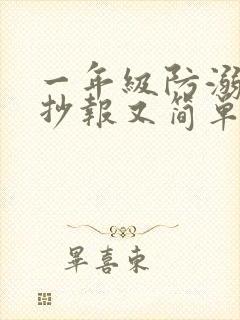 一年級防溺
抄報又簡單
畢喜東